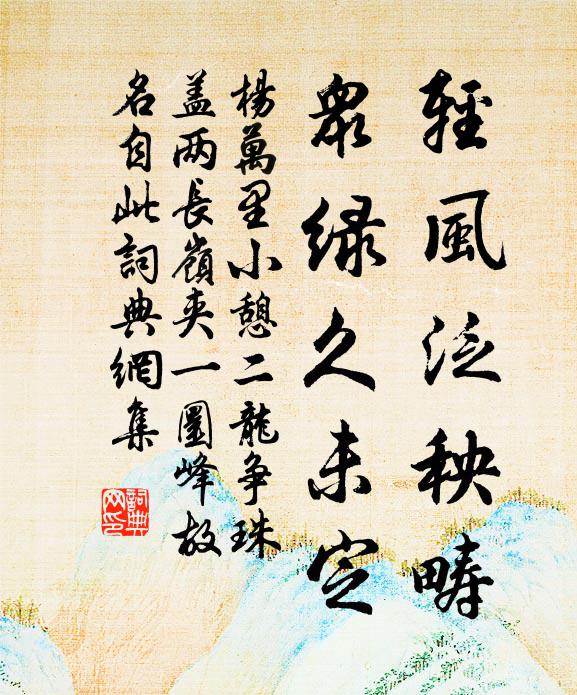 輕風泛秧疇
衆緑久未定
楊萬里小憩二龍争珠
盖两長嶺夾一圓峰故
名自此詞典網集
詞典
网印